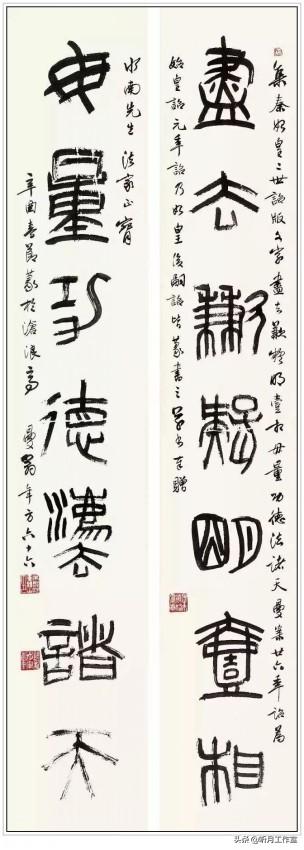 集秦始皇二世詔版文字盡去歉疑明壹相毋量功德法諸天曼案廿六年詔爲
盡去歉疑明壹相
始皇詔元年詔乃始皇後嗣詔皆篆書之奉贈
南先生法家正
毋量功德灋諸天
辛酉春節篆於滄浪亭曼翁年方六十六
头条@听月工作室